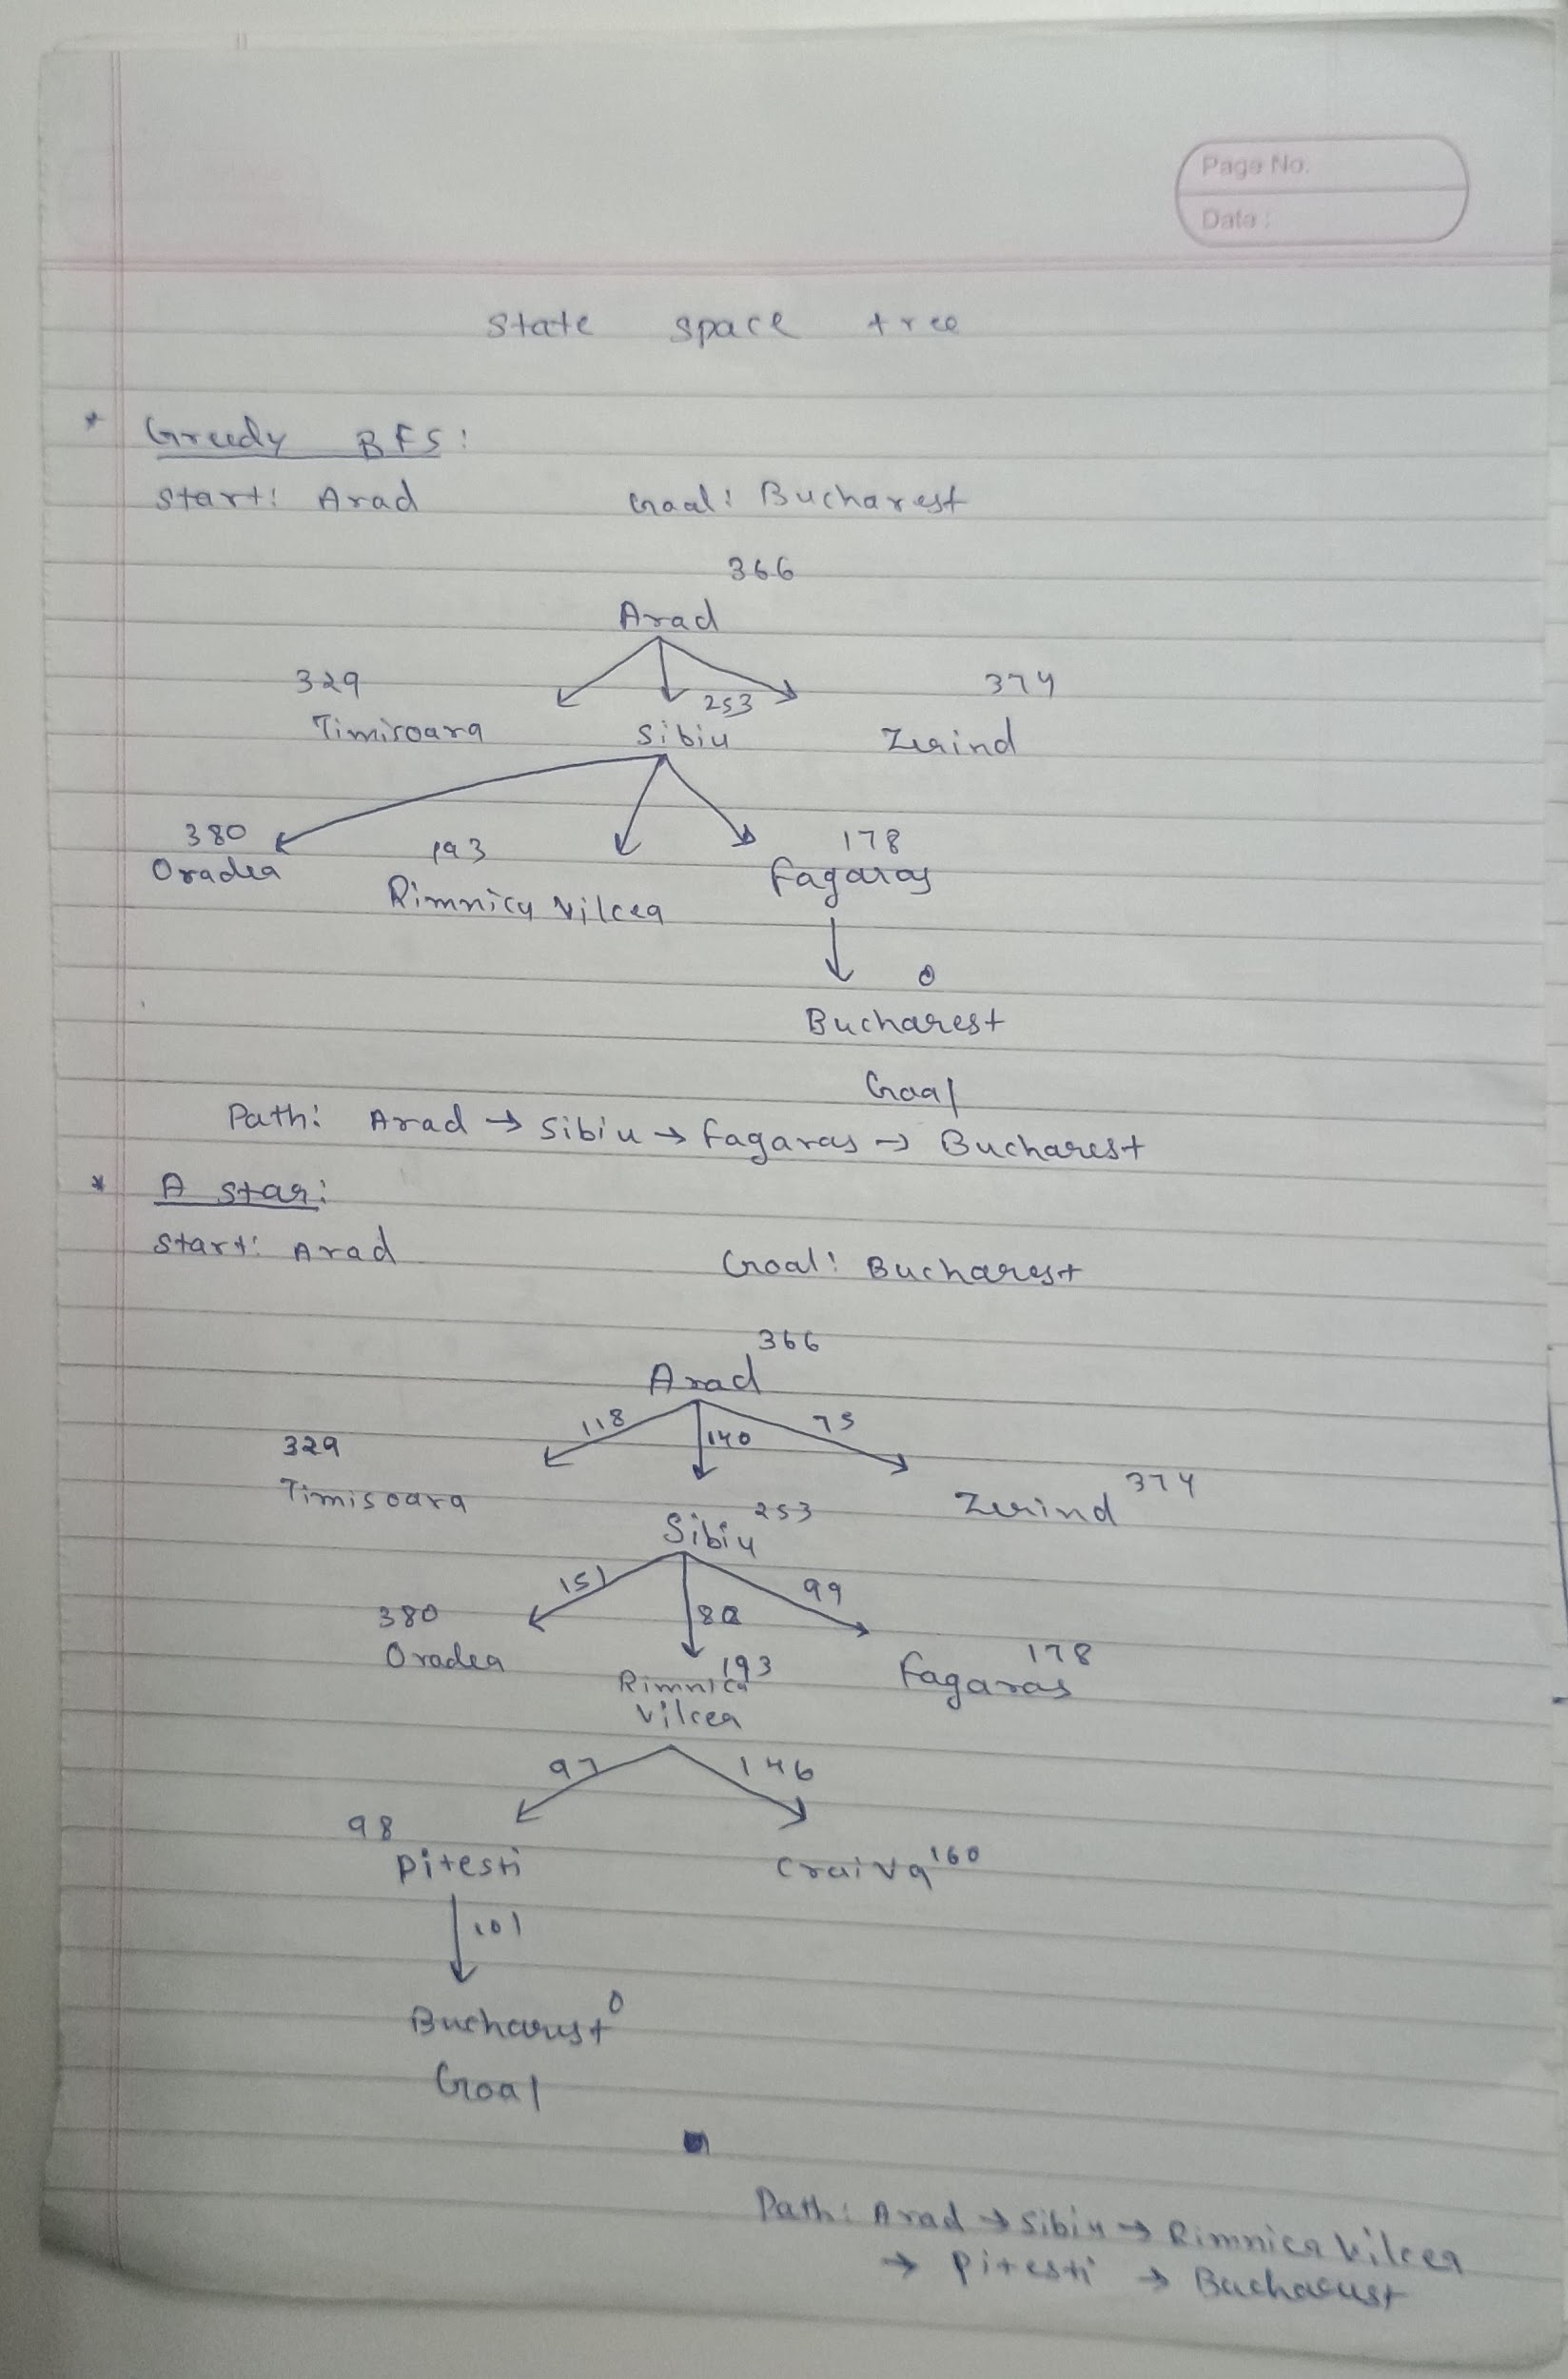 Page No.
Date :
State space tree
* Greedy BFS:
Start: Arad Goal: Bucharest
366
Arad
329 253 374
Timisoara Sibiu Zerind
380 193 178
Oradea Rimnicu Vilcea Fagaras
0
Bucharest
Goal
Path: Arad → Sibiu → Fagaras → Bucharest
* A star:
Start: Arad Goal: Bucharest
366
Arad
118 140 75
329 253 374
Timisoara Sibiu Zerind
151 80 99
380 193 178
Oradea Rimnica Vilcea Fagaras
97 146
98 160
Pitesti Craiva
101
0
Bucharest
Goal
Path: Arad → Sibiu → Rimnica Vilcea
→ Pitesti → Bucharest